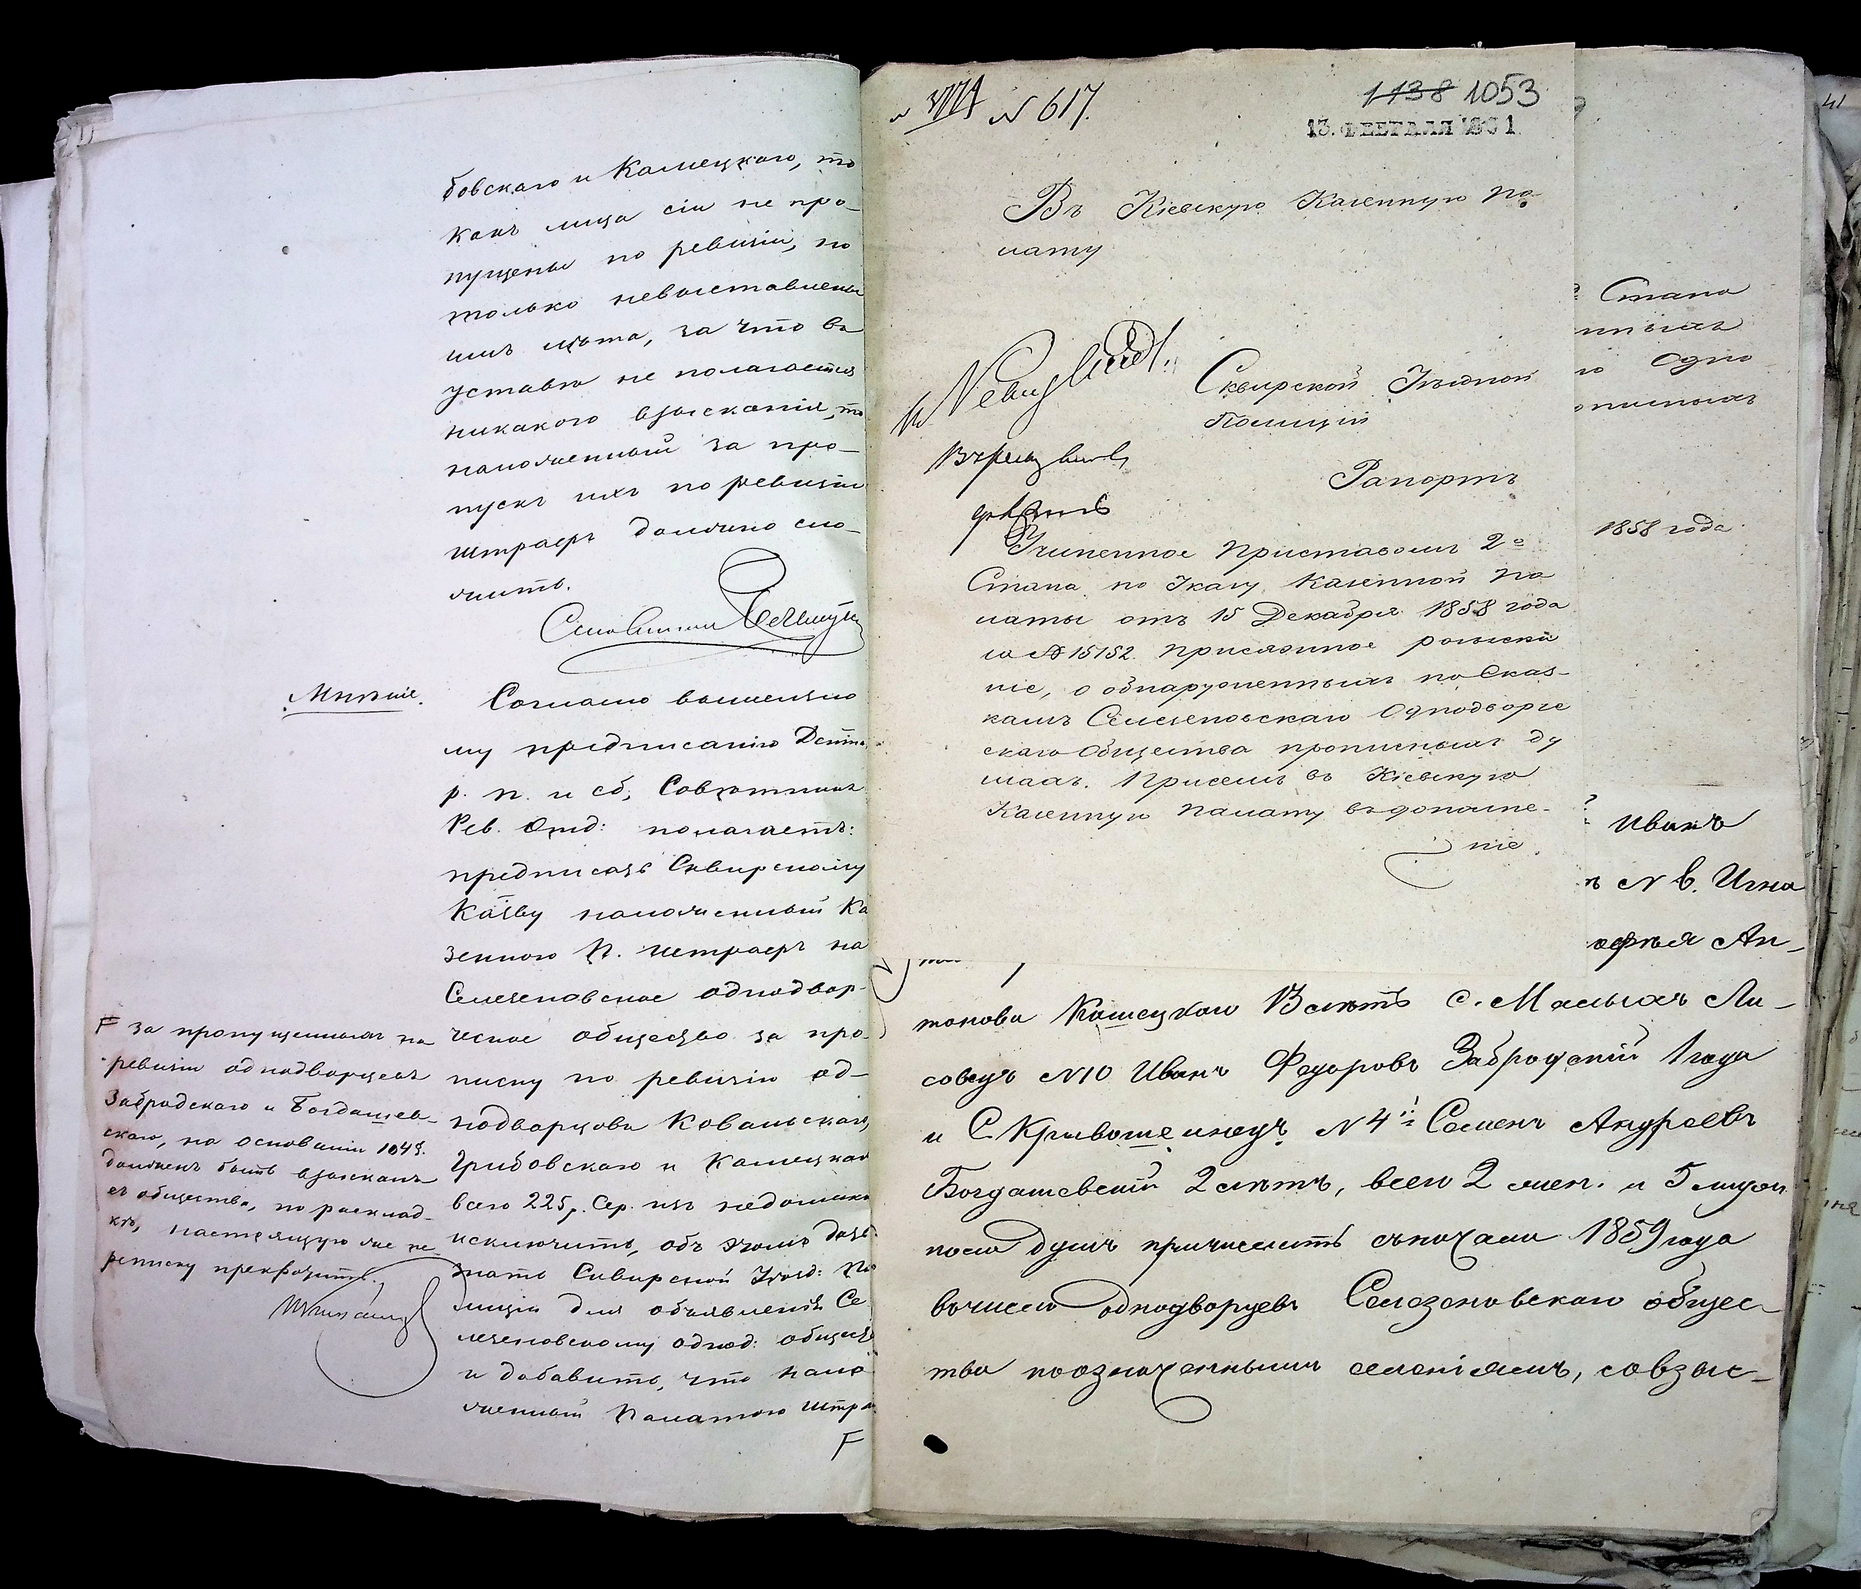 бовскаго и Камецкаго, то
какъ лица сіи не про-
пущены по ревизіи, но
только невыставлены
имъ лѣта, за что въ
уставѣ не полагается
никакого взысканія, то
наложенный за про-
пускъ ихъ по ревизіи
штрафъ должно сло-
жить.
Мнѣніе.
Согласно вышеизло
му предписанію Депта.
р. п. и сб; Совѣтникъ
Рев. Отд: полагаетъ:
предписать Сквирскому
Каз-ву наложенный Ка
зенною П. штрафъ на
Селезеновское однодвор-
ческое общество за про-
писку по ревизіи од-
нодворцовъ Ковальскаго,
Грибовскаго и Камецкаго
всего 225 р. сер. изъ недоимки
исключить, объ этомъ дать
знать Сквирской Уѣзд: По
лиціи для объявленія Се
лезеновскому однод: общест
и добавить, что нало
женный Палатою штра
F
F за пропущенныхъ по
ревизіи однодворцевъ
Забродскаго и Богдашев-
скаго, на основаніи 1049.
долженъ быть взысканъ
съ общества, по расклад-
кѣ, настоящую же пе
реписку прекратить.
N 617.
1138 1053
13. ФЕВРАЛЯ 1861
Въ Кіевскую Казенную Па
лату
Сквирской Уѣздной
Полиціи
Рапортъ
Учиненное Приставомъ 2го
Стана по Указу Казенной Па
латы отъ 15 Декабря 1858 года
за № 15152. присяжное розыска
ніе, о обнаруженныхъ по Сказ-
камъ Селезеновскаго Однодворче
скаго Общества прописныхъ ду
шахъ. Присемъ въ Кіевскую
Казенную Палату въ дополне-
ніе.
Стана
нныхъ
го Одно
описныхъ
1858 года
Иванъ
N 6. Игна
офѣя Ан-
тонова Камецкаго 8 лѣтъ с. Малыхъ Ли-
совцъ N 10 Иванъ Федоровъ Забродскій 1 года
и С. Кривошеинцъ N 4й Семенъ Андреевъ
Богдашевскій 2 лѣтъ, всего 2 жен. и 5 мужск.
пола душъ причислить съ начала 1859 года
вочисло однодворцевъ Селезеновскаго общес-
тва по означеннымъ селеніямъ, совзыс-